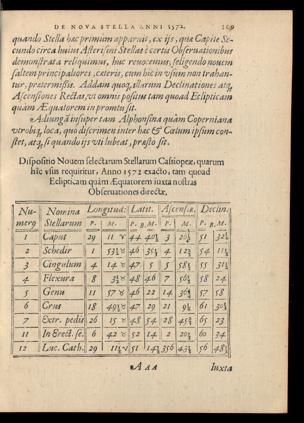 DE NOVA STELLA ANNI 1572. 109
quando Stella hæc primùm apparuit, ex ijs, quæ Capite Se-
cundo circa huius Asterismi Stellas è certis Observationibus
demonstrata reliquimus, huc revocemus, seligendo novem
saltem principaliores, cæteris, cum hîc in usum non trahan-
tur, prætermissis. Addam quoq, illarum Declinationes atq,
Ascensiones Rectas, vt omnis positus tam quoad Eclipticam
quàm Æquatorem in promtu sit.
Adiungā insuper tam Alphonsina quàm Coperniana
utrobiq, loca, quo discrimen inter hæc & Cœlum ipsum con-
stet, atq, si quando ijs vti lubeat, præsto sit.
Dispositio Novem selectarum Stellarum Cassiopeæ, quarum
hîc usus requiritur, Anno 1572 exacto, tam quoad
Eclipticam quàm Æquatorem iuxta nostras
Observationes directæ.
Nu- Nomina Longitud: Latit. Ascensiæ. Declin.
mero Stellarum P. M. P. M. P. M. P. M.
1 Caput 29 11 51
2 Schedir 1 46 4 54
3 Cingulum 4 14 47 5 5 55
4 Flexura 8 48 7 58 24
5 Genu 11 57 46 22 14 57 58
6 Crus 18 47 29 21 61
7 Extr. pedis 26 15 48 54 28 65 23
11 In Erect. se. 6 42 52 14 2 60
12 Luc. Cath. 29 51 356 56
Aaa Iuxta